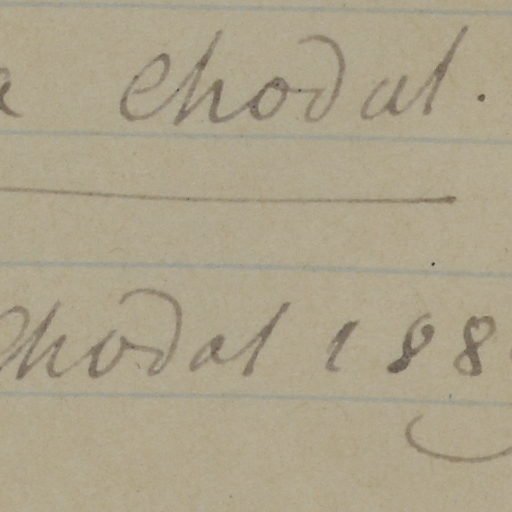 a Chodat.
Chodat 188